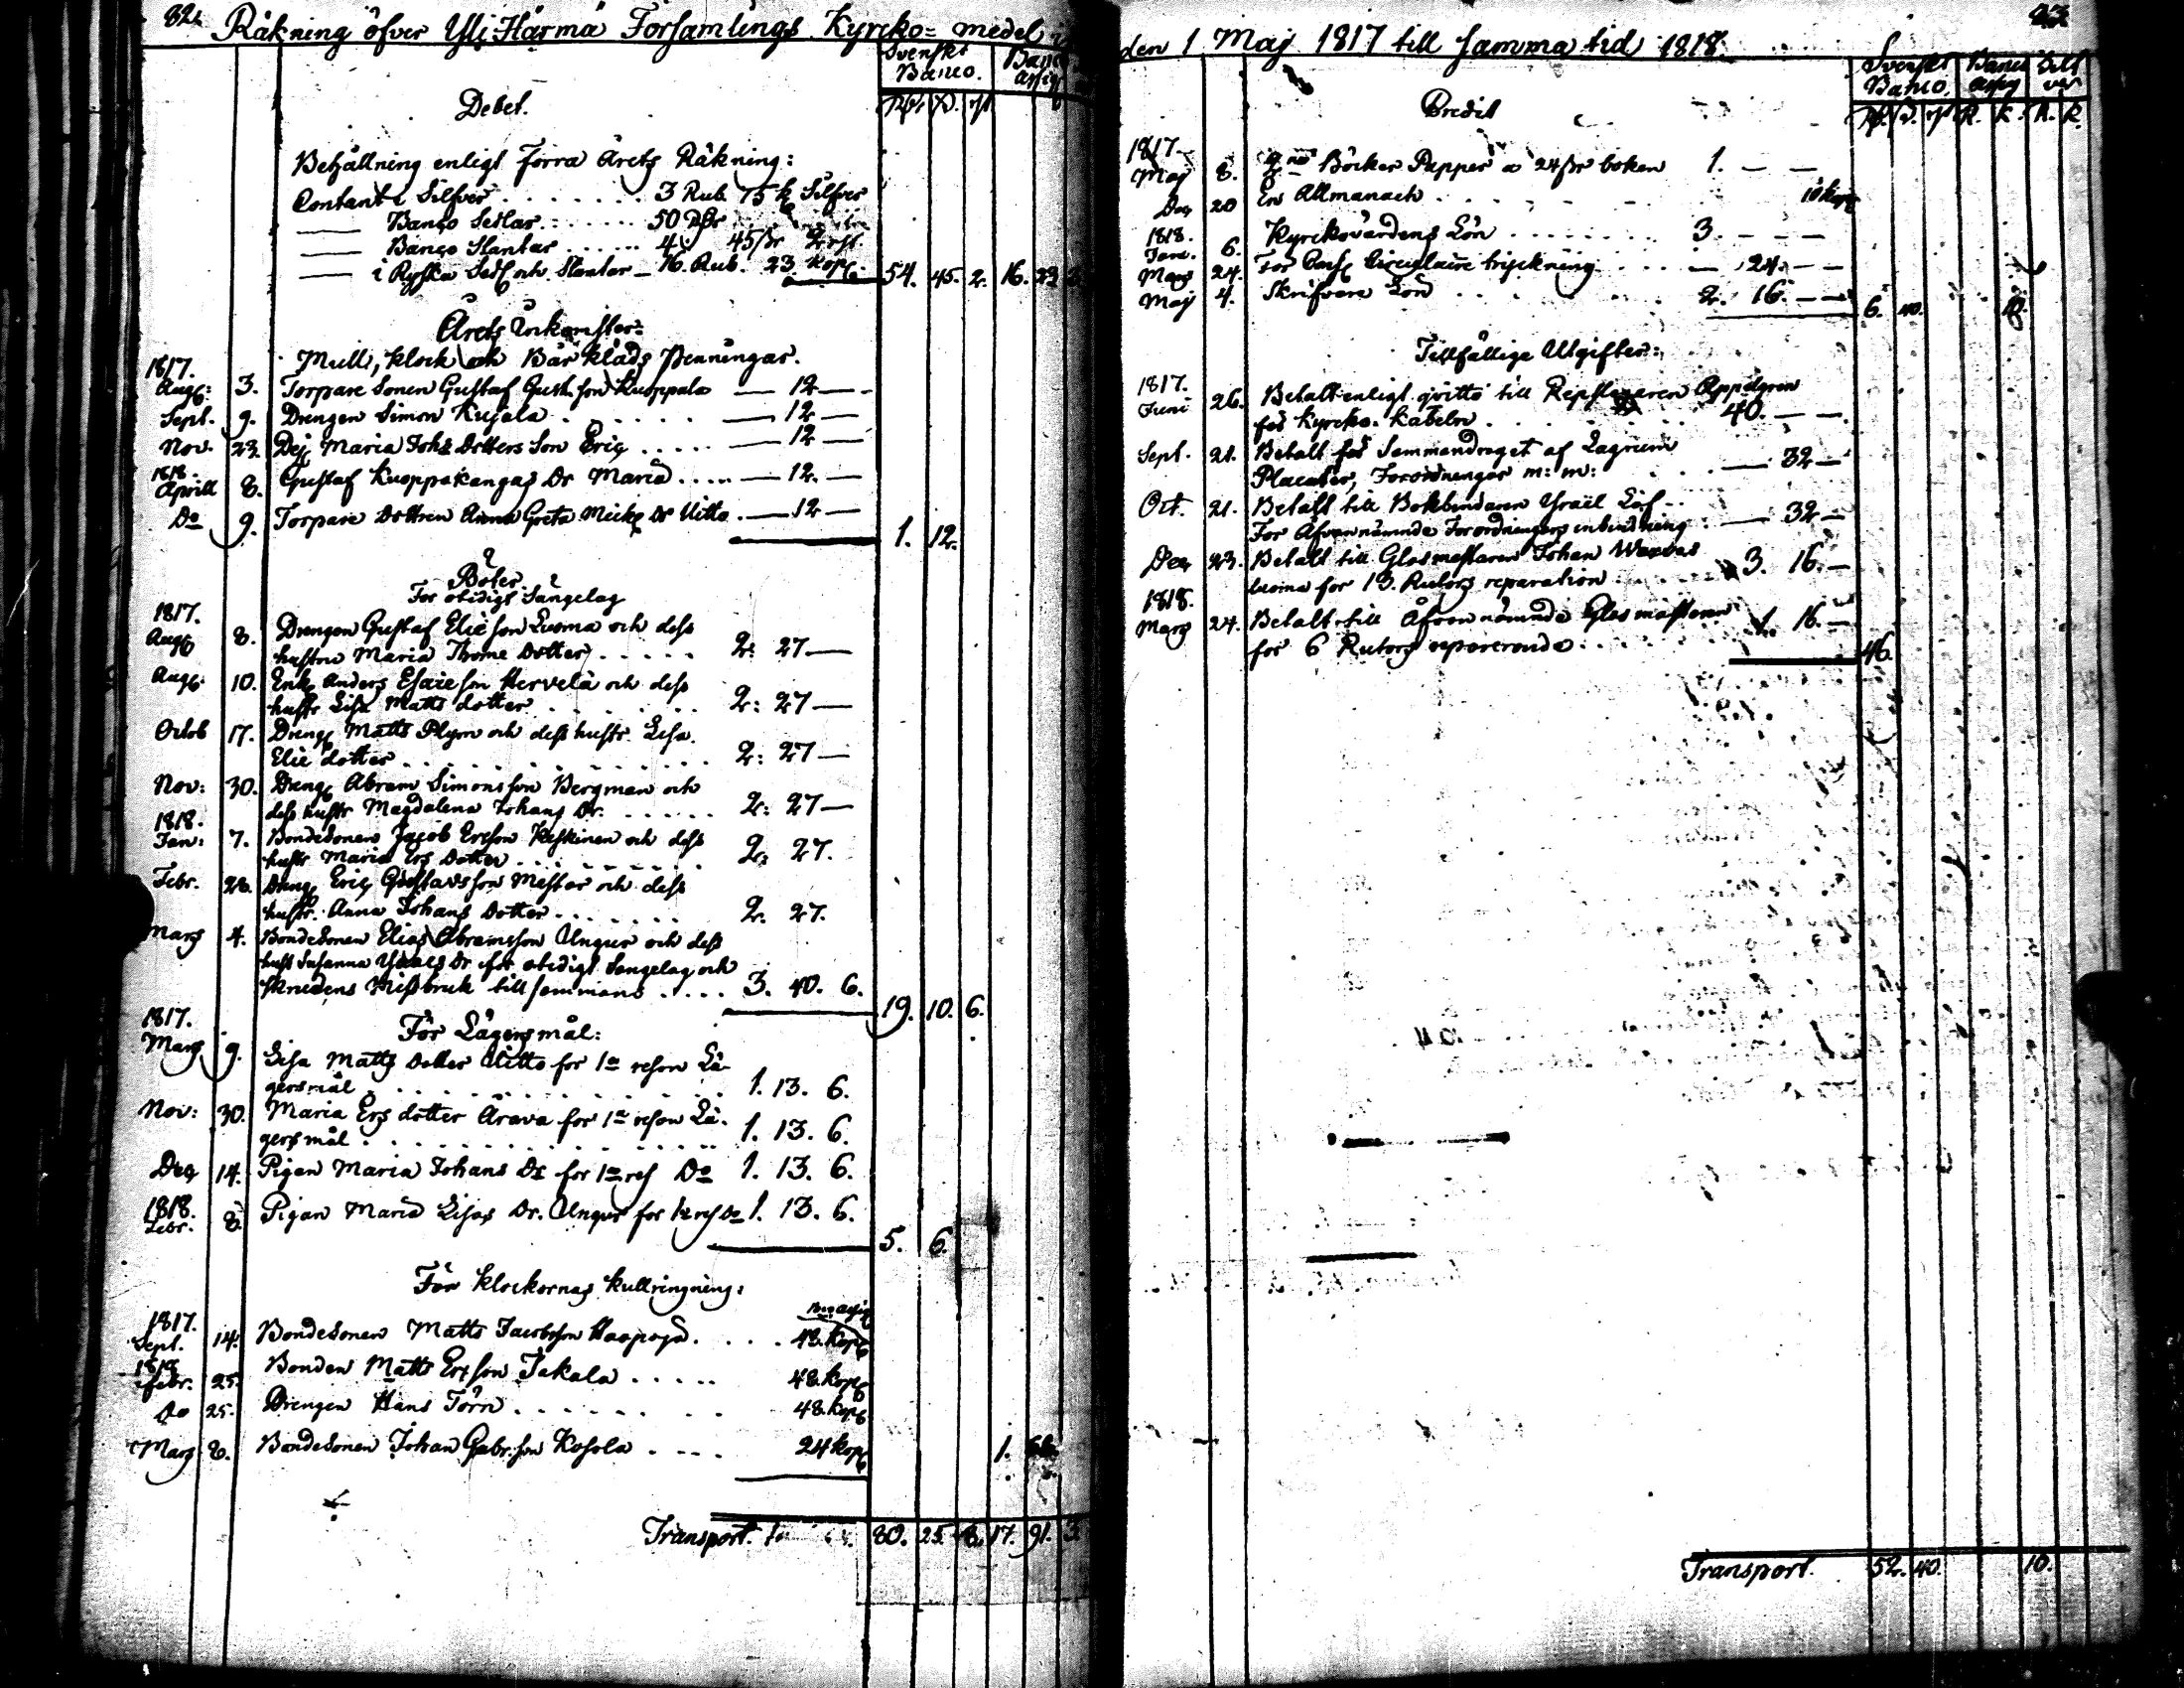 82.
Räkning öfver Yli Härmä Forsamlings Kyrcko-medel
Svenskt Banco. Banco assig
Debet.
Behållning enligt förra Årets Räkning:
Contant i Silfver . . . . . . . 3 Rub. 75 k Silfver
— Banco Sedlar . . . . . . 50 Rdr
— Banco Slantar . . . . . . 4. 45 sr 2 rst.
— i Ryska Sedl och Slantar — 16. Rub. 23 kop. 54. 45. 2. 16. 23
Årets Inkomster:
Mull, klock och Bår kläds Penningar.
1817.
Aug: 3. Torpare Sonen Gustaf Gust.son Kuoppala — 12 —
Sept. 9. Drengen Simon Kujala . . . . . . — 12 —
Nov. 23. Dej Maria Joh. Dotters Son Eric . . . . . — 12 —
1818.
Aprill 8. Gustaf Kuoppakangas Dr Maria . . . . . — 12. —
Do 9. Torpare Dottren Anna Greta Mick Dr Uitto . — 12 —
1. 12.
Böter.
För otidigt Sängelag
1817.
Aug 8. Drengen Gustaf Elie son Luoma och dess
hustru Maria Thome Dotter . . . . . 2: 27 —
Aug. 10. Enk Anders Esaie son Hervela och dess
hustr Lisa Matts dotter . . . . . . . 2: 27 —
Octob 17. Dreng Matts Plym och dess hustr. Lisa
Elie dotter . . . . . . . . . . . . 2: 27 —
Nov: 30. Dreng Abram Simonsson Bergman och
dess hustr Magdalena Johans Dr. . . . . . 2: 27 —
1818.
Jan: 7. Bondesonen Jacob Ersson Keskinen och dess
hustr Maria Ers Dotter . . . . . . . . 2: 27.
Febr. 28. Dreng Eric Gustavsson Mestar och dess
hustr. Anna Johans Dotter . . . . . . . 2. 27.
Mars 4. Bondesonen Elias Abramsson Ungur och dess
hust Susanna Ysraels Dr för otidigt Sängelag och
skrudens Missbruk till samman . . . . . 3. 40. 6.
19. 10. 6.
1817.
För Lägersmål:
Mars 9. Lisa Matts Dotter Uitto for 1a resan Lä-
gersmål . . . . . . . . . . . . 1. 13. 6.
Nov: 30. Maria Ers dotter Arava for 1a resan Lä-
gersmål . . . . . . . . . . . . 1. 13. 6.
Dec 14. Pigan Maria Johans Dr for 1a res Do 1. 13. 6.
1818.
Febr. 8. Pigan Maria Lisas Dr. Ungur for 1a res Do 1. 13. 6.
5. 6.
För klockornas kullringning:
1817.
Sept. 14. Bondesonen Matts Jacobsson Haapoja . . . . 48. kop
1818
Febr. 25. Bonden Matts Ersson Jakala . . . . . 48. kop
Do 25. Drengen Hans Törn . . . . . . . . 48. kop
Mars 8. Bondesonen Johan Gabr.son Kosola . . . . 24 kop 1. 68.
Transport. 80. 25. 8. 17. 91. 3
den 1 Maj 1817 till samma tid 1818.
Svenskt Banco. Banco assig Silfver
Credit
1817.
Maj 8. 2 Böcker Papper a 24 sr boken 1. — —
Dec 20 En Allmanach . . . . . . . 10 kop
1818.
Janu. 6. Kyrckovärdens Lön . . . . . . . . 3. — — —
Mars 24. För Circulaire tryckning . . . — 24. — —
Maj 4. Skrifvare Lön . . . . . . . . . 2. 16. — — 6. 40. 10.
Tillfällige Utgifter:
1817.
Juni 26. Betalt enligt qvitto till Repslagaren Appelgren
för Kyrcko-Kabeln . . . . . . . 40. — —
Sept. 21. Betalt för Sammandraget af Lagrum
Placater, Forordningar m: m: . . — 32 —
Oct. 21. Betalt till Bokbindaren Ysraël Löf
För Åfvannämnde Forordningars inbindning — 32 —
Dec 23. Betalt till Glasmästaren Johan
luoma for 13. Rutors reparation . . . . 3. 16. —
1818.
Mars 24. Betalt till Åfvannämnde Glasmästaren
for 6 Rutors reparerande . . . . . . 1. 16. —
46.
Transport. 52. 40. 10.